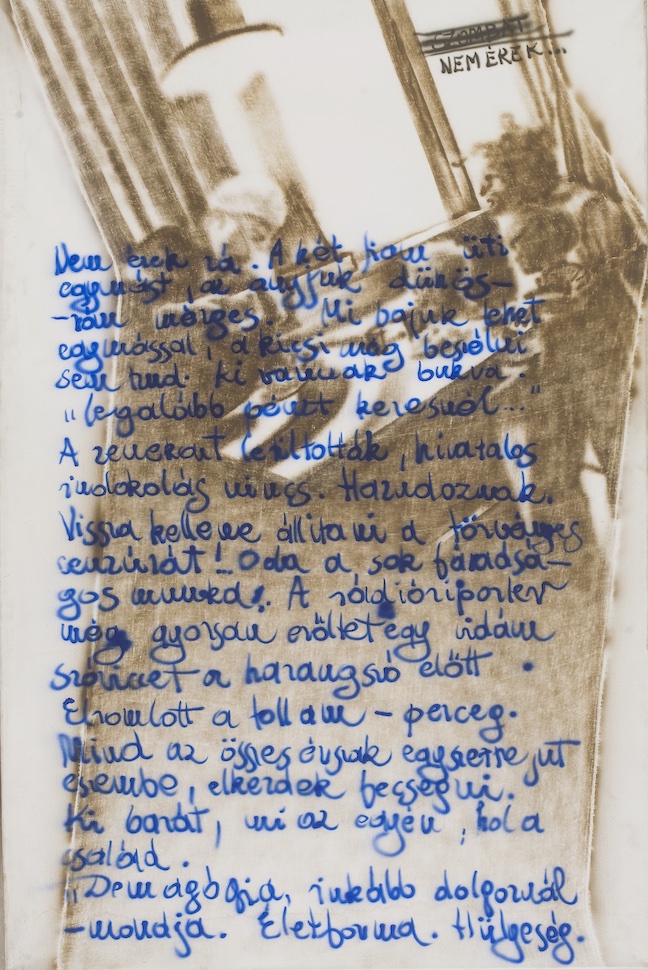 SZOMBAT
NEM ÉREK...
Nem érek rá. A két fiam üti
egymást, az anyjuk dühös-
-rám mérges. Mi bajuk lehet
egymással, a kicsi még beszélni
sem tud. Ki vannak bukva.
"legalább pénzt keresnél..."
A zenekart letiltották, hivatalos
indokolás nincs. Handoznak.
Vissza kellene állítani a törvényes
cenzúrát! Oda a sok fáradsá-
gos munka. A rádióriporter
még gyorsan erőltet egy vidám
színezet a harangszó előtt.
Elromlott a tollam - perceg.
Mind az összes évszak egyszerre jut
eszembe, elkezdek fecsegni.
Ki barát, mi az egyén, hol a
család.
"Demagógia, inkább dolgoznál
-mondja. Életforma. Hülyeség.